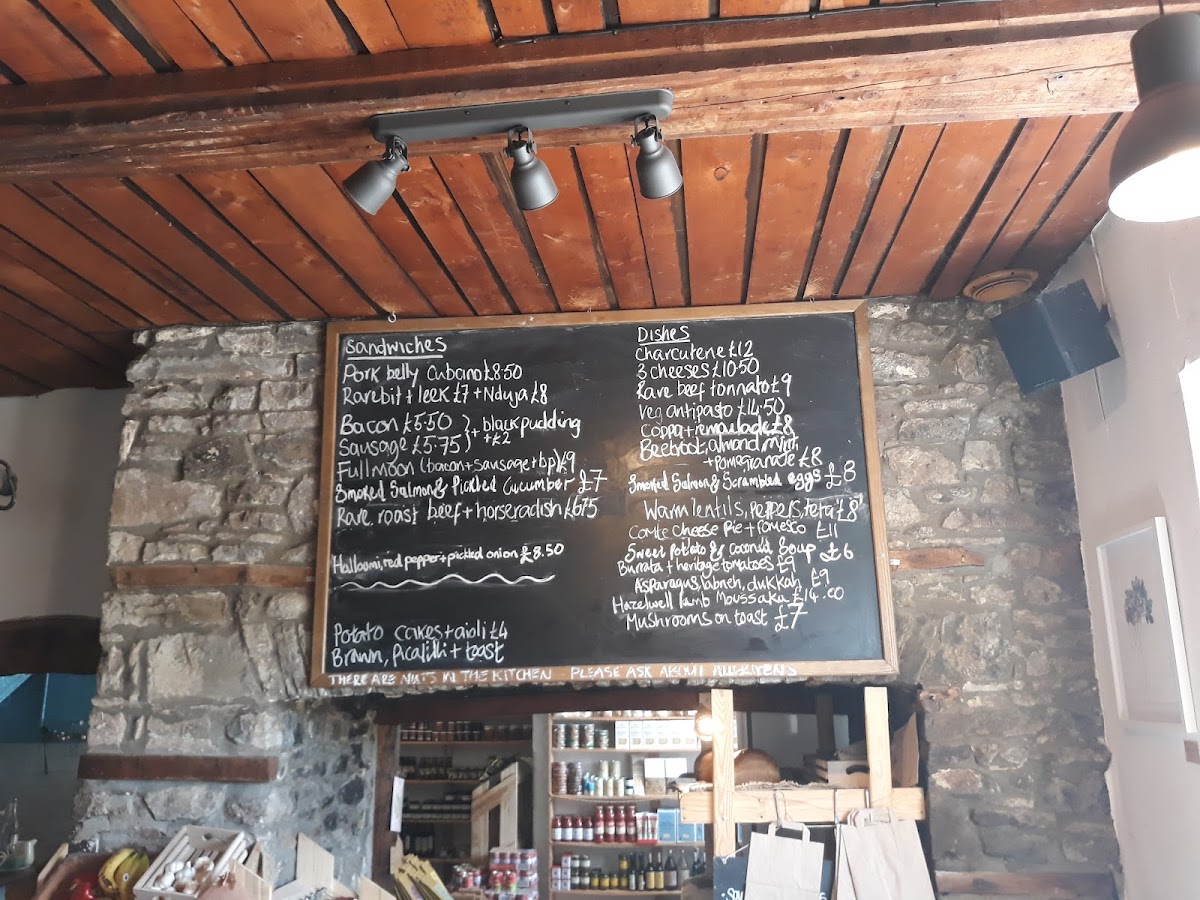 Sandwiches
Pork belly Cubano £8.50
Rarebit + leek £7 + Nduja £8
Bacon £5.50 } + black pudding
Sausage £5.75 } + £2
Full moon (bacon + sausage + bp) £9
Smoked Salmon & Pickled Cucumber £7
Rare roast beef + horseradish £6.75
Halloumi, red pepper + pickled onion £8.50
Potato cakes + aioli £4
Brawn, Picalilli + toast
Dishes
Charcuterie £12
3 cheeses £10.50
Rare beef tonnato £9
Veg antipasto £14.50
Coppa + remoulade £8
Beetroot, almond, mint,
+ pomegranate £8
Smoked Salmon & Scrambled eggs £8
Warm lentils, peppers, feta £8
Comte Cheese Pie + romesco £11
Sweet potato & coconut Soup £6
Burrata + heritage tomatoes £9
Asparagus, labneh, dukkah £9
Hazelwell lamb Moussaka £14.00
Mushrooms on toast £7
THERE ARE NUTS IN THE KITCHEN PLEASE ASK ABOUT ALLERGENS